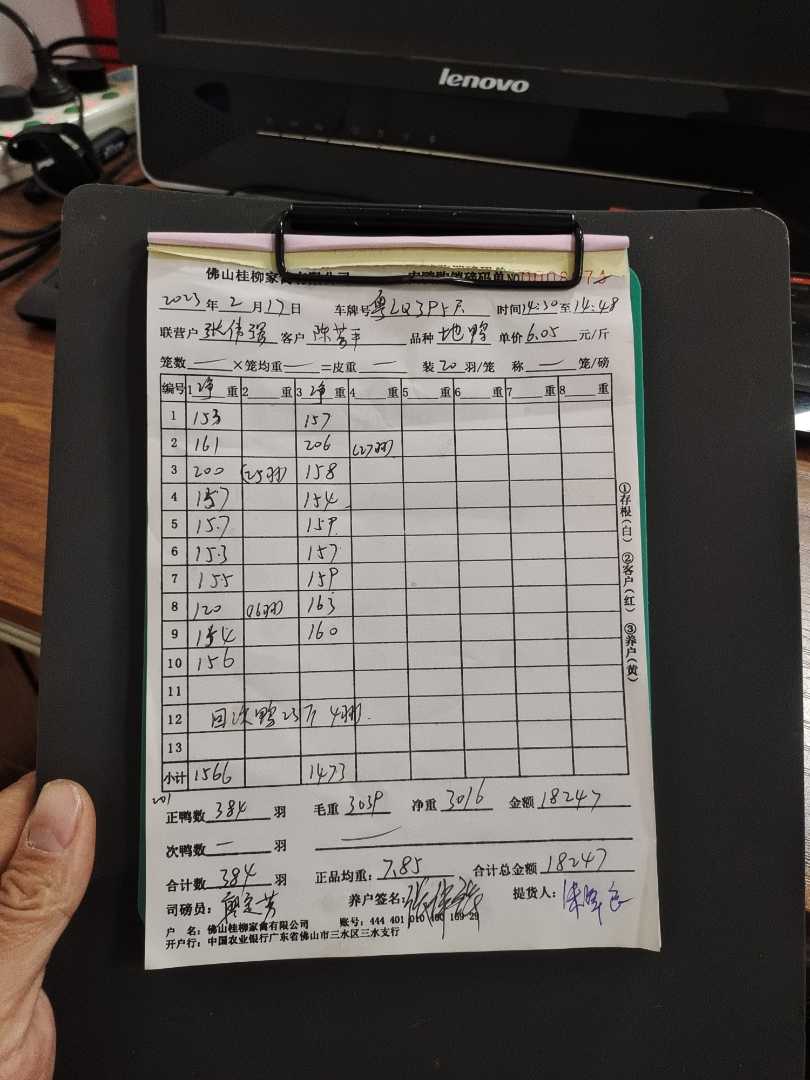 lenovo
佛山桂柳家禽有限公司 磅码单No
2023年2月17日 车牌号 时间14:30至14:48
联营户张伟强 客户陈芳平 品种地鸭 单价6.05元/斤
笼数—×笼均重—=皮重— 装20羽/笼 称—笼/磅
编号 1净重 2重 3净重 4重 5重 6重 7重 8重
1 153 157
2 161 206 (27羽)
3 200 (25羽) 158
4 157 154
5 157 159
6 153 157
7 155 159
8 120 (16羽) 163
9 154 160
10 156
11
12 回次鸭23斤 4羽.
13
小计 1566 1473
①存根(白) ②客户(红) ③养户(黄)
201
正鸭数384羽 毛重3039 净重3016 金额18247
次鸭数—羽 —
合计数384羽 正品均重:7.85 合计总金额18247
司磅员: 养户签名: 提货人:
户 名:佛山桂柳家禽有限公司 账号:444 401 010 400 169 29
开户行:中国农业银行广东省佛山市三水区三水支行